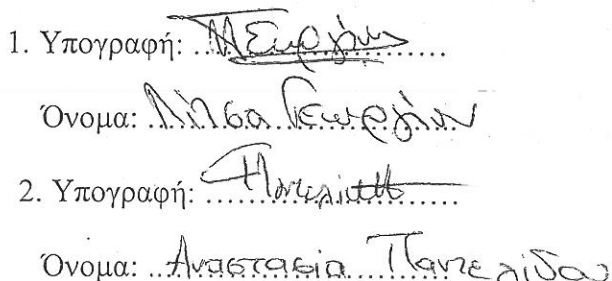 1. Υπογραφή:
Όνομα: Λίλσα Γεωργίου
2. Υπογραφή:
Όνομα: Αναστασία Παντελίδου